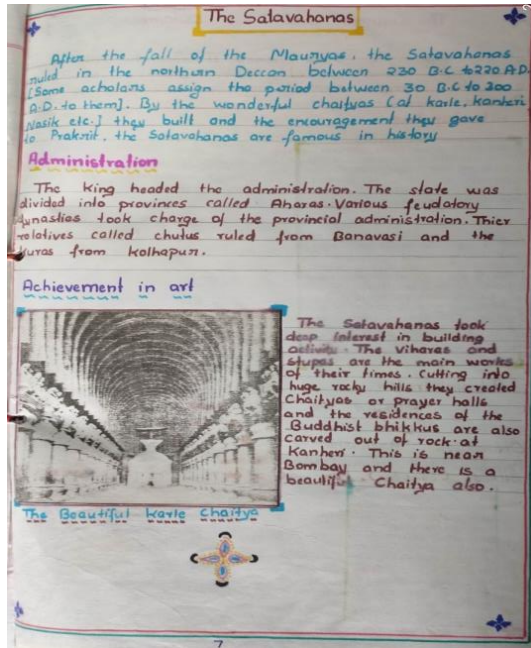 The Satavahanas
After the fall of the Mauryas, the Satavahanas
ruled in the northern Deccan between 230 B.C to 220 A.D.
[Some acholars assign the period between 30 B.C to 200
A.D. to them]. By the wonderful chaityas [at karle, kanheri,
Nasik etc.] they built and the encouragement they gave
to Prakrit, the Satavahanas are famous in history
Administration
The king headed the administration. The state was
divided into provinces called Aharas. Various feudatory
dynasties took charge of the provincial administration. Thier
relatives called chutus ruled from Banavasi and the
kuras from kolhapur.
Achievement in art
The Satavahanas took
deep interest in building
activity. The viharas and
stupas are the main works
of their times. Cutting into
huge rocky hills they created
Chaityas or prayer halls
and the residences of the
Buddhist bhikkus are also
carved out of rock at
kanheri. This is near
Bombay and there is a
beautiful Chaitya also.
The Beautiful karle chaitya
7